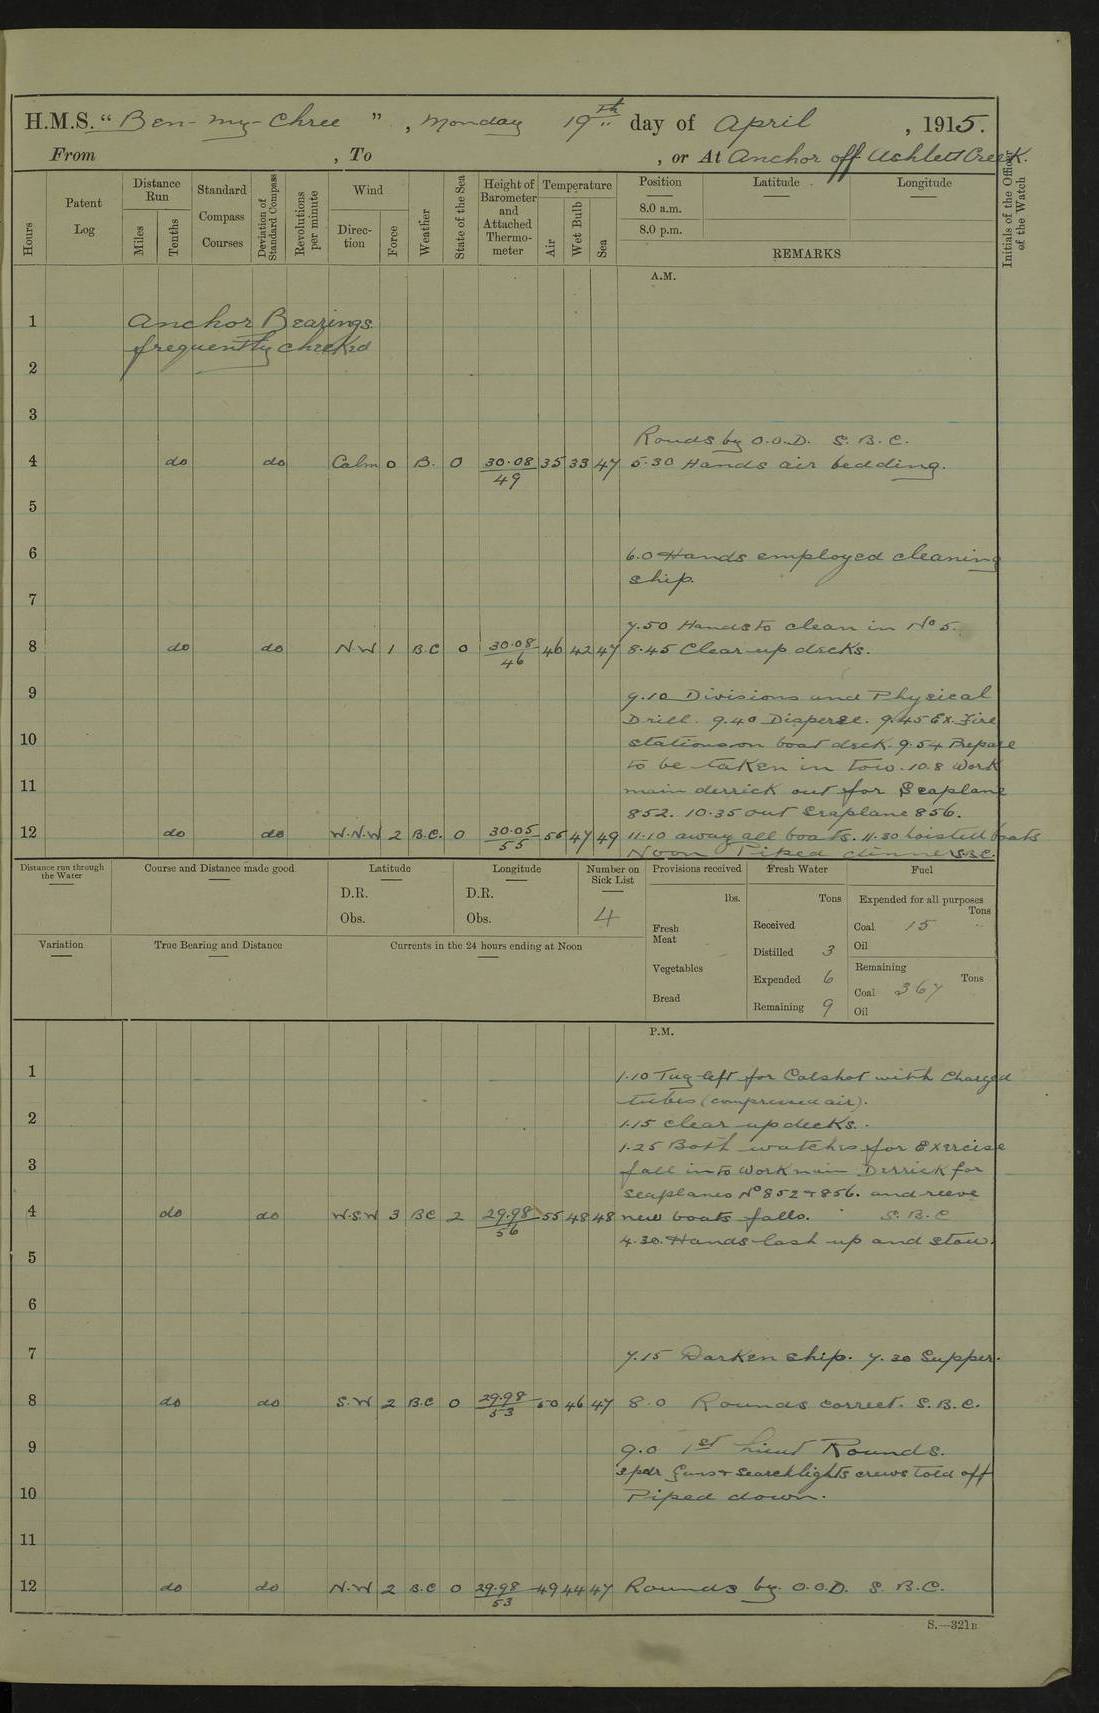 H.M.S. “ Ben-my-Chree ” , Monday 19th day of April , 1915.
From , To , or At Anchor off Ashlett Creek.
Hours
Patent Log
Distance Run
Miles
Tenths
Standard Compass Courses
Deviation of Standard Compass
Revolutions per minute
Wind
Direction
Force
Weather
State of the Sea
Height of Barometer and Attached Thermometer
Temperature
Air
Wet Bulb
Sea
Position
8.0 a.m.
8.0 p.m.
Latitude
Longitude
REMARKS
Initials of the Officer of the Watch
A.M.
1 Anchor Bearings
frequently checked
2
3
Rounds by O.O.D. S.B.C.
4 do do Calm 0 B. 0 30.08/49 35 33 47 5.30 Hands air bedding.
5
6 6.0 Hands employed cleaning
ship.
7
7.50 Hands to clean in No 5.
8 do do N.W 1 B.C 0 30.08/46 46 42 47 8.45 Clear up decks.
9 9.10 Divisions and Physical
Drill. 9.40 Disperse. 9.45 Ex. Fire
10 stations on boat deck. 9.54 Prepare
to be taken in tow. 10.8 Work
11 main derrick out for Seaplane
852. 10.35 out Seaplane 856.
12 do do W.N.W 2 B.C. 0 30.05/55 55 47 49 11.10 away all boats. 11.30 hoisted boats
Noon Piped dinner S.B.C.
Distance run through the Water
Course and Distance made good
Latitude
D.R.
Obs.
Longitude
D.R.
Obs.
Number on Sick List
4
Provisions received
lbs.
Fresh Meat
Vegetables
Bread
Fresh Water
Tons
Received
Distilled 3
Expended 6
Remaining 9
Fuel
Expended for all purposes
Tons
Coal 15
Oil
Remaining
Tons
Coal 367
Oil
Variation
True Bearing and Distance
Currents in the 24 hours ending at Noon
P.M.
1 1.10 Tug left for Calshot with Charged
tubes (compressed air).
2 1.15 clear up decks.
1.25 Both watches for Exercise
3 fall in to Work main Derrick for
Seaplanes No 852 + 856. and reeve
4 do do W.S.W 3 BC 2 29.98/56 55 48 48 new boats falls. S.B.C
4.30. Hands lash up and stow.
5
6
7 7.15 Darken ship. 7.30 Supper.
8 do do S.W 2 B.C 0 29.98/53 50 46 47 8.0 Rounds correct. S.B.C.
9 9.0 1st Lieut Rounds.
3 pdr Guns + Searchlights crews told off
10 Piped down.
11
12 do do N.W 2 B.C 0 29.98/53 49 44 47 Rounds by O.O.D. S.B.C.
S.—321B